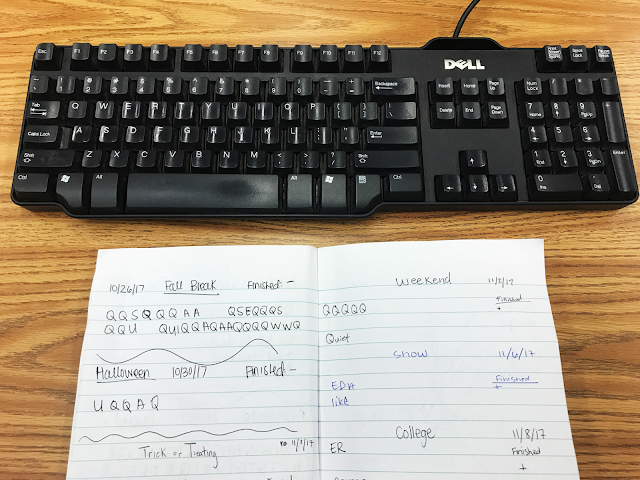 DELL
Esc F1 F2 F3 F4 F5 F6 F7 F8 F9 F10 F11 F12 Print Screen SysRq Scroll Lock Pause Break
Backspace Insert Home Page Up Num Lock
Tab Q W E R T Y U I O P Delete End Page Down 7 Home 8 9 PgUp
Caps Lock A S D F G H J K L Enter 4 5 6
Shift Z X C V B N M Shift 1 End 2 3 PgDn Enter
Ctrl Alt Alt Ctrl 0 Ins Del
10/26/17 Fall Break Finished: –
QQSQQQAA QSEQQQS
QQU QUIQQAQAAQQQQWWQ
Halloween 10/30/17 Finished: –
U Q Q A Q
Trick or Treating
Weekend
Finished
+
QQQQQ
Quiet
Snow 11/6/17
Finished
+
EDA
like
College 11/8/17
ER Finished
+